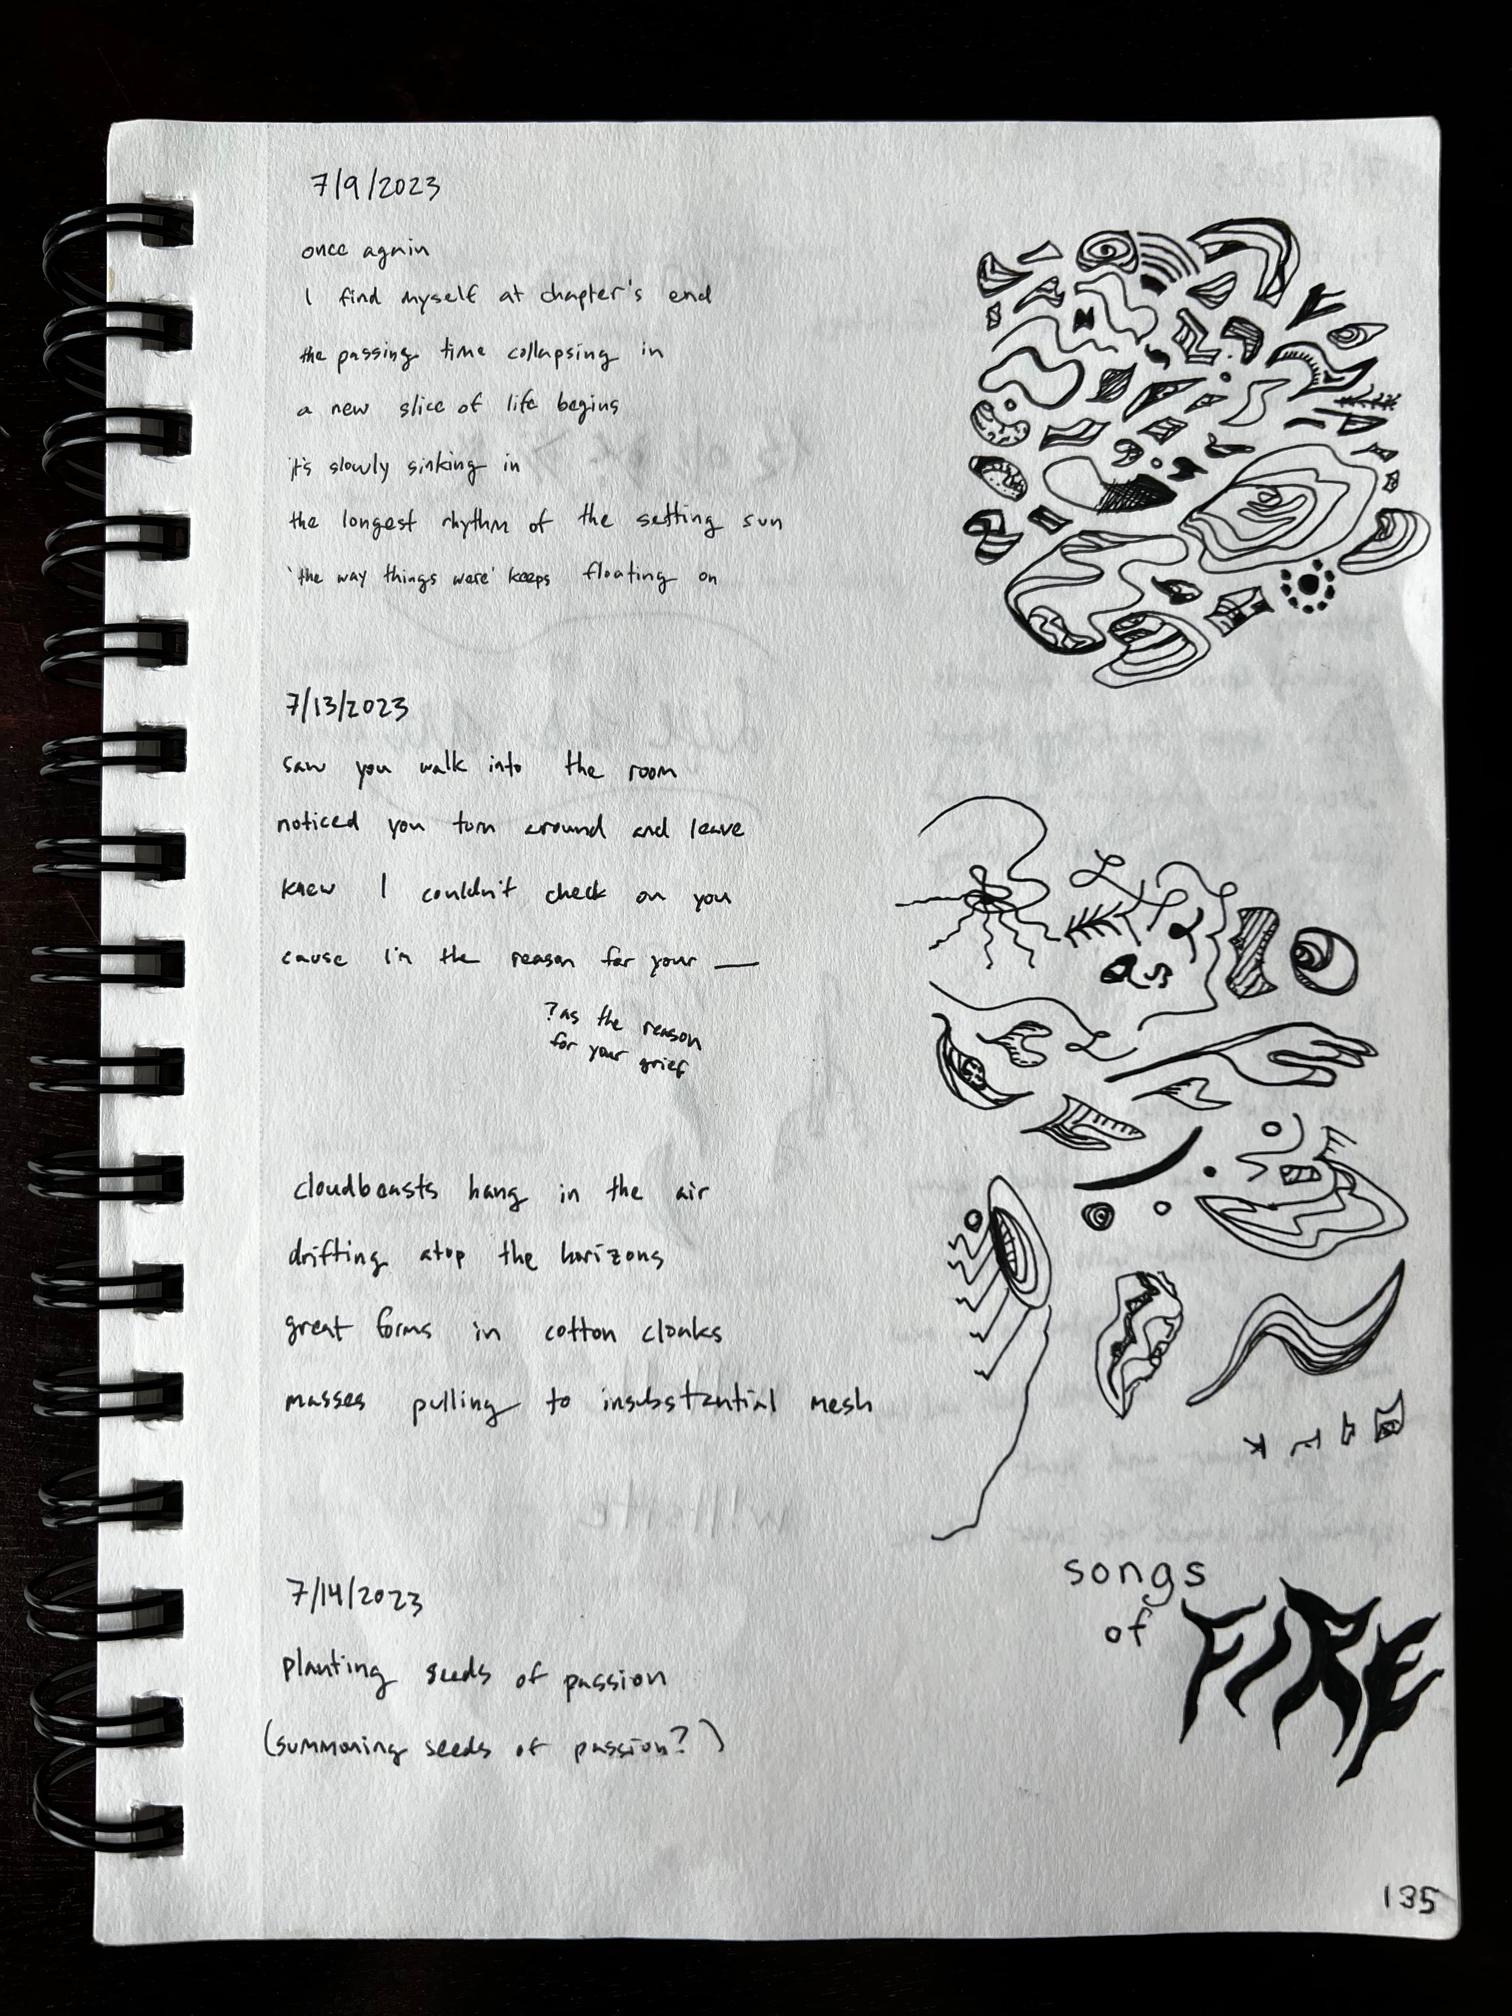 7/9/2023
once again
I find myself at chapter's end
the passing time collapsing in
a new slice of life begins
it's slowly sinking in
the longest rhythm of the setting sun
'the way things were' keeps floating on
7/13/2023
saw you walk into the room
noticed you turn around and leave
knew I couldn't check on you
cause I'm the reason for your __
? as the reason
for your grief
cloudbeasts hang in the air
drifting atop the horizons
great forms in cotton cloaks
masses pulling to insubstantial mesh
7/14/2023
planting seeds of passion
(summoning seeds of passion?)
songs
of FIRE
135